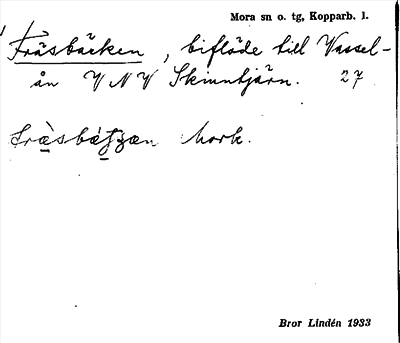 Mora sn o. tg, Kopparb. l.
Fräsbäcken, biflöde till Vassel-
ån V N V Skinntjärn. 27
Mork.
Bror Lindén 1933